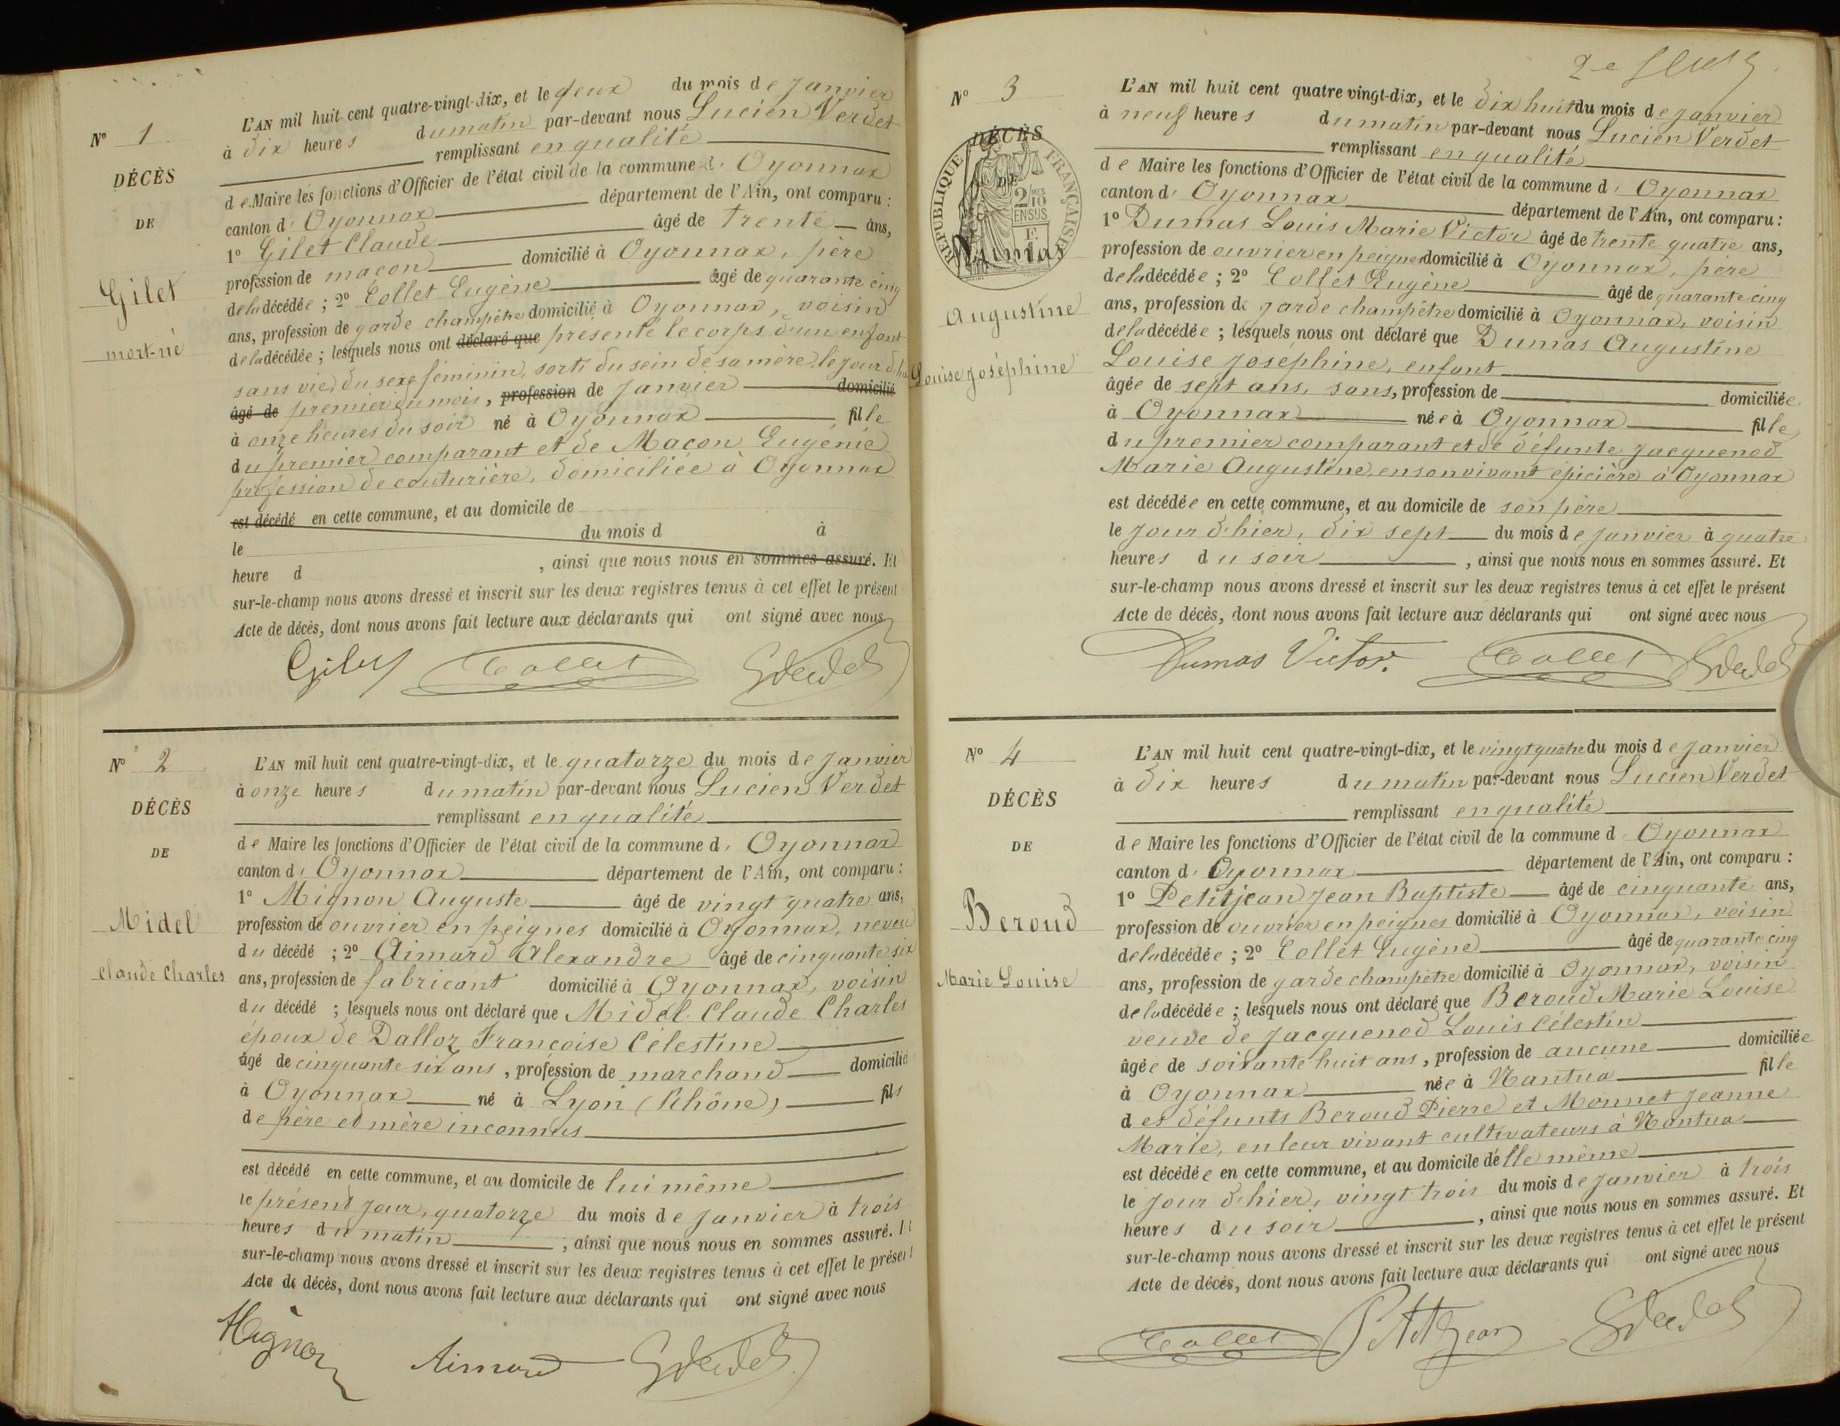 N° 1
DÉCÈS
DE
Gilet
mort-né
L'AN mil huit cent quatre-vingt-dix, et le deux du mois de Janvier
à dix heures du matin par-devant nous Lucien Verdet
remplissant en qualité
de Maire les fonctions d'Officier de l'état civil de la commune d' Oyonnax
canton d' Oyonnax département de l'Ain, ont comparu :
1° Gilet Claude âgé de trente ans,
profession de maçon domicilié à Oyonnax, père
de la décédée ; 2° Collet Eugène âgé de quarante cinq
ans, profession de garde champêtre domicilié à Oyonnax, voisin
de la décédée ; lesquels nous ont déclaré que présenté le corps d'un enfant
sans vie, du sexe féminin, sorti du sein de sa mère, le jour d'hier
âgé de premier du mois, profession de Janvier domicilié
à onze heures du soir né à Oyonnax fille
du premier comparant et de Maçon Eugénie
profession de couturière, domiciliée à Oyonnax
est décédé en cette commune, et au domicile de
le du mois d à
heure d , ainsi que nous nous en sommes assuré. Et
sur-le-champ nous avons dressé et inscrit sur les deux registres tenus à cet effet le présent
Acte de décès, dont nous avons fait lecture aux déclarants qui ont signé avec nous
Gilet Collet
N° 2
DÉCÈS
DE
Midel
Claude Charles
L'AN mil huit cent quatre-vingt-dix, et le quatorze du mois de Janvier
à onze heures du matin par-devant nous Lucien Verdet
remplissant en qualité
de Maire les fonctions d'Officier de l'état civil de la commune d' Oyonnax
canton d' Oyonnax département de l'Ain, ont comparu :
1° Mignon Auguste âgé de vingt quatre ans,
profession de ouvrier en peignes domicilié à Oyonnax, neveu
du décédé ; 2° Aimard Alexandre âgé de cinquante six
ans, profession de fabricant domicilié à Oyonnax, voisin
du décédé ; lesquels nous ont déclaré que Midel Claude Charles
époux de Dalloz Françoise Célestine
âgé de cinquante six ans, profession de marchand domicilié
à Oyonnax né à Lyon (Rhône) fils
de père et mère inconnus
est décédé en cette commune, et au domicile de lui même
le présent jour, quatorze du mois de Janvier à trois
heures du matin , ainsi que nous nous en sommes assuré. Et
sur-le-champ nous avons dressé et inscrit sur les deux registres tenus à cet effet le présent
Acte de décès, dont nous avons fait lecture aux déclarants qui ont signé avec nous
Mignon Aimard
N° 3
DÉCÈS
DE
RÉPUBLIQUE FRANÇAISE
Dumas
Augustine
Louise Joséphine
L'AN mil huit cent quatre vingt-dix, et le dix huit du mois de Janvier
à neuf heures du matin par-devant nous Lucien Verdet
remplissant en qualité
de Maire les fonctions d'Officier de l'état civil de la commune d' Oyonnax
canton d' Oyonnax département de l'Ain, ont comparu :
1° Dumas Louis Marie Victor âgé de trente quatre ans,
profession de ouvrier en peignes domicilié à Oyonnax, père
de la décédée ; 2° Collet Eugène âgé de quarante cinq
ans, profession de garde champêtre domicilié à Oyonnax, voisin
de la décédée ; lesquels nous ont déclaré que Dumas Augustine
Louise Joséphine, enfant
âgée de sept ans, sans, profession de domiciliée
à Oyonnax née à Oyonnax fille
du premier comparant et de défunte Jacquenod
Marie Augustine, en son vivant épicière à Oyonnax
est décédée en cette commune, et au domicile de son père
le jour d'hier, dix sept du mois de Janvier à quatre
heures du soir , ainsi que nous nous en sommes assuré. Et
sur-le-champ nous avons dressé et inscrit sur les deux registres tenus à cet effet le présent
Acte de décès, dont nous avons fait lecture aux déclarants qui ont signé avec nous
Dumas Victor. Collet
N° 4
DÉCÈS
DE
Beroud
Marie Louise
L'AN mil huit cent quatre-vingt-dix, et le vingt quatre du mois de Janvier
à dix heures du matin par-devant nous Lucien Verdet
remplissant en qualité
de Maire les fonctions d'Officier de l'état civil de la commune d' Oyonnax
canton d' Oyonnax département de l'Ain, ont comparu :
1° Petitjean Jean Baptiste âgé de cinquante ans,
profession de ouvrier en peignes domicilié à Oyonnax, voisin
de la décédée ; 2° Collet Eugène âgé de quarante cinq
ans, profession de garde champêtre domicilié à Oyonnax, voisin
de la décédée ; lesquels nous ont déclaré que Beroud Marie Louise
veuve de Jacquenod Louis Célestin
âgée de soixante huit ans, profession de aucune domiciliée
à Oyonnax née à Nantua fille
des défunts Beroud Pierre et Monnet Jeanne
Marie, en leur vivant cultivateurs à Nantua
est décédée en cette commune, et au domicile d'elle même
le jour d'hier, vingt trois du mois de Janvier à trois
heures du soir , ainsi que nous nous en sommes assuré. Et
sur-le-champ nous avons dressé et inscrit sur les deux registres tenus à cet effet le présent
Acte de décès, dont nous avons fait lecture aux déclarants qui ont signé avec nous
Collet Petitjean